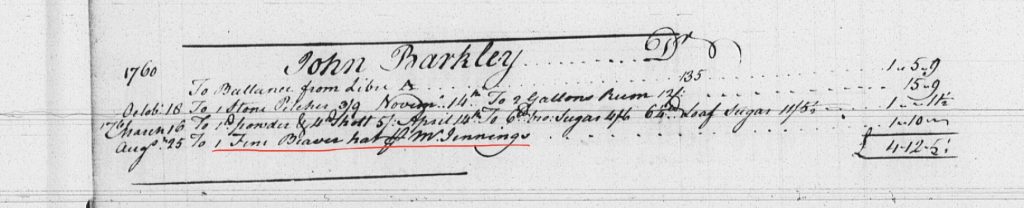 John Barkley Dr
1760
To Ballance from Liber A 135 1..5..9
Octobr 18 To 1 Stone Pitcher 3/9 Novemr 14th To 2 Gallons Rum 12/. 15..9
March 16 To 1lb powder & 4lb Shott 5/. April 14th To 6lb bro: Sugar 4/6 6lb Loaf Sugar 11/5½ 1..1..11½
Augt 25 To 1 Fine Beaver hat pr Mr Jennings 1..10..
£ 4..12..